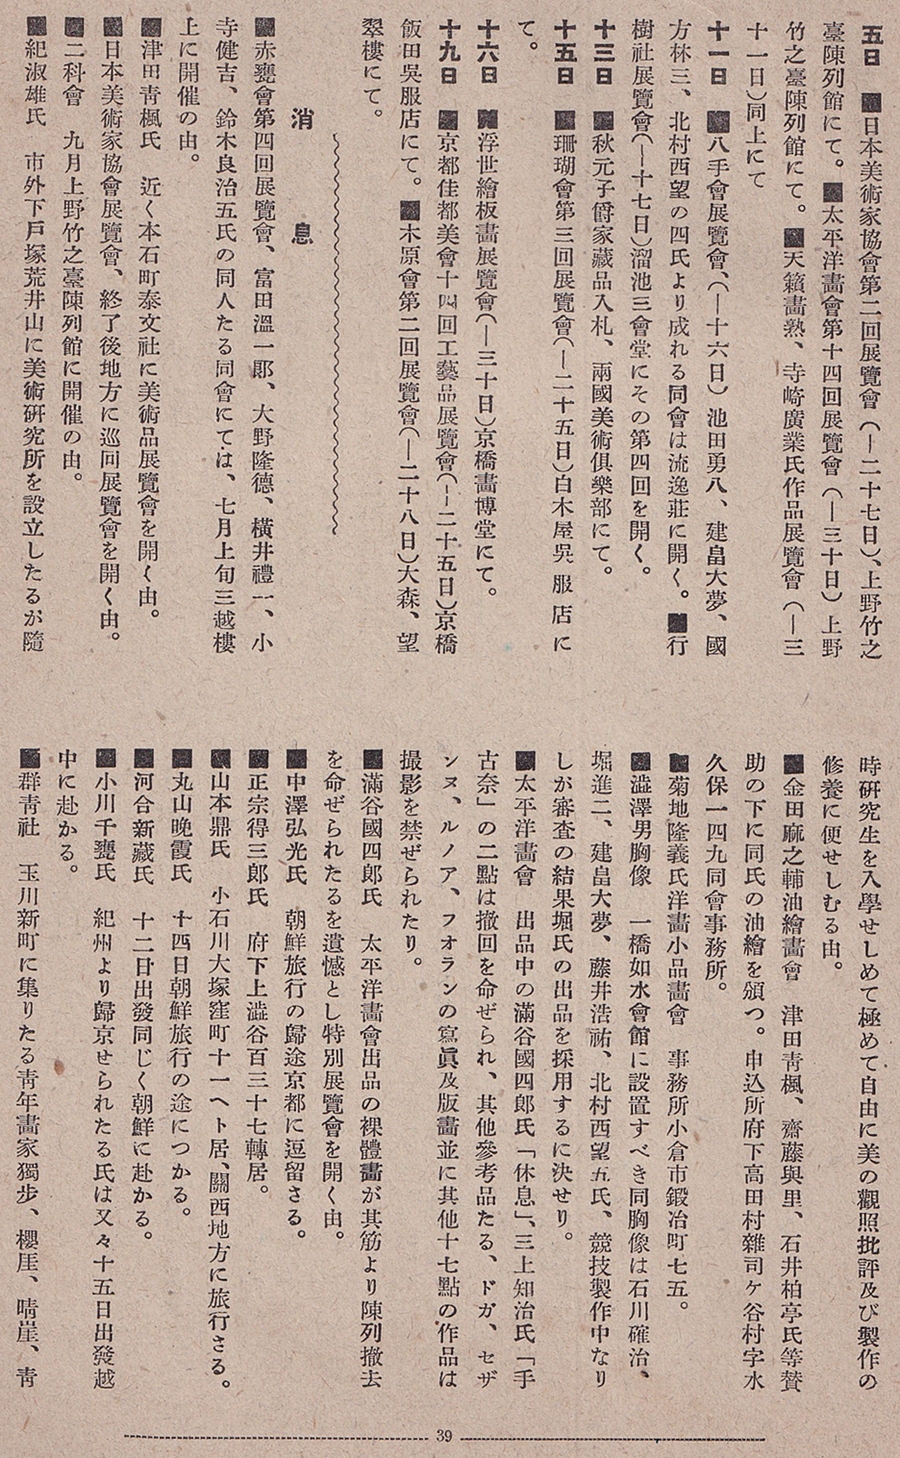 五日　■日本美術家協會第二回展覽會（―二十七日）、上野竹之
臺陳列館にて。■太平洋畫會第十四回展覽會（―三十日）上野
竹之臺陳列館にて。■天籟畫熟、寺崎廣業氏作品展覽會（―三
十一日）同上にて
十一日　■八手會展覽會、（―十六日）池田勇八、建畠大夢、國
方林三、北村西望の四氏より成れる同會は流逸莊に開く。■行
樹社展覽會（―十七日）溜池三會堂にその第四回を開く。
十三日　■秋元子爵家藏品入札、兩國美術俱樂部にて。
十五日　■珊瑚會第三回展覽會（―二十五日）白木屋吳服店に
て。
十六日　■浮世繪板畫展覽會（―三十日）京橋畫博堂にて。
十九日　■京都佳都美會十四回工藝品展覽會（―二十五日）京橋
飯田吳服店にて。■木原會第二回展覽會（―二十八日）大森、望
翠樓にて。
消息
■赤甕會第四回展覽會、富田溫一郎、大野隆德、橫井禮一、小
寺健吉、鈴木良治五氏の同人たる同會にては、七月上旬三越樓
上に開催の由。
■津田靑楓氏　近く本石町泰文社に美術品展覽會を開く由。
■日本美術家協會展覽會、終了後地方に巡回展覽會を開く由。
■二科會　九月上野竹之臺陳列館に開催の由。
■紀淑雄氏　市外下戶塚荒井山に美術硏究所を設立したるが隨
時硏究生を入學せしめて極めて自由に美の觀照批評及び製作の
修養に便せしむる由。
■金田麻之輔油繪畫會　津田靑楓、齋藤與里、石井柏亭氏等賛
助の下に同氏の油繪を頒つ。申込所府下高田村雜司ケ谷村字水
久保一四九同會事務所。
■菊地隆義氏洋畫小品畫會　事務所小倉市鍛冶町七五。
■澁澤男胸像　一橋如水會館に設置すべき同胸像は石川確治、
堀進二、建畠大夢、藤井浩祐、北村西望五氏、競技製作中なり
しが審査の結果堀氏の出品を採用するに決せり。
■太平洋畫會　出品中の滿谷國四郎氏「休息」、三上知治氏「手
古奈」の二點は撤回を命ぜられ、其他參考品たる、ドガ、セザ
ンヌ、ルノア、フオランの寫眞及版畫並に其他十七點の作品は
撮影を禁ぜられたり。
■滿谷國四郎氏　太平洋畫會出品の裸體畫が其筋より陳列撤去
を命ぜられたるを遺憾とし特別展覽會を開く由。
■中澤弘光氏　朝鮮旅行の歸途京都に逗留さる。
■正宗得三郎氏　府下上澁谷百三十七轉居。
■山本鼎氏　小石川大塚窪町十一へト居、關西地方に旅行さる。
■丸山晚霞氏　十四日朝鮮旅行の途につかる。
■河合新藏氏　十二日出發同じく朝鮮に赴かる。
■小川千甕氏　紀州より歸京せられたる氏は又々十五日出發越
中に赴かる。
■群靑社　玉川新町に集りたる靑年畫家獨步、櫻厓、晴崖、靑
39